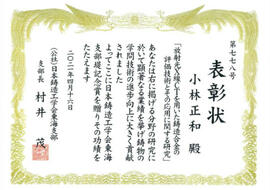 第七七八号
表彰状
小林正和 殿
「放射光X線CTを用いた鋳造合金の
評価技術とその応用に関する研究」
あなたは左に掲げる分野の研究に
於いて顕著なる業績を挙げ鋳物の
学問技術の進歩向上に大きく貢献
されました
よってここに日本鋳造工学会東海
支部堤記念賞を贈りその功績を
たたえます
二〇二二年四月十六日
(公社)日本鋳造工学会東海支部
支部長 村井 茂